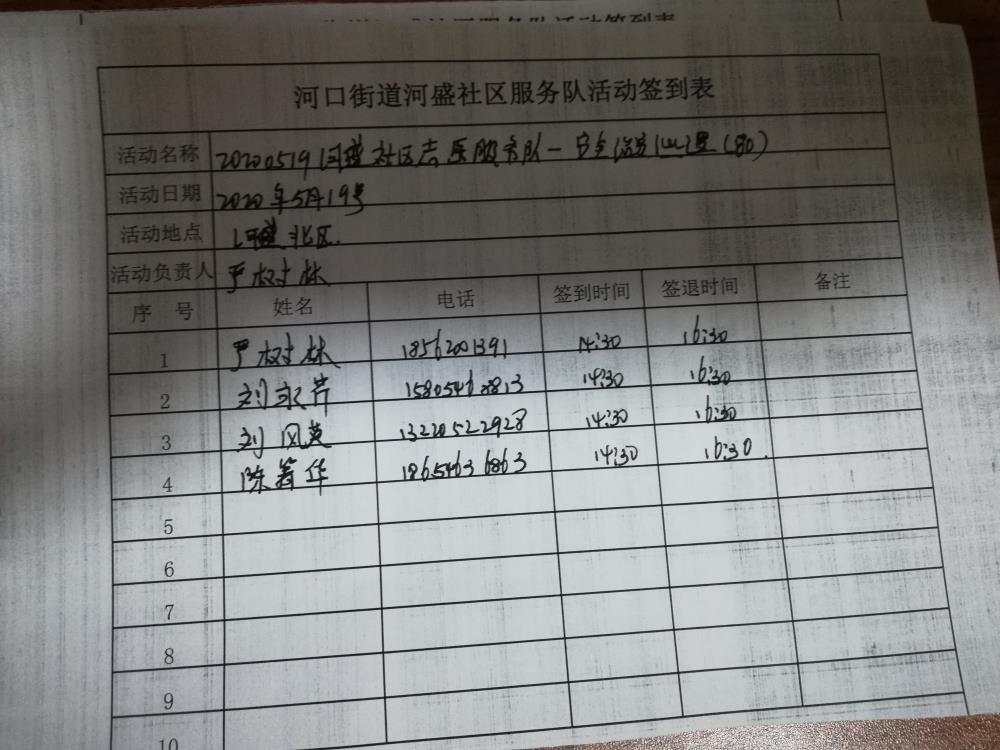 河口街道河盛社区服务队活动签到表
活动名称 20200519河盛社区志愿服务队一安全巡逻(80)
活动日期 2020年5月19号
活动地点 河盛北区.
活动负责人 严树林
序 号 姓名 电话 签到时间 签退时间 备注
1 严树林 18562001391 14:30 16:30
2 刘永芹 15805462813 14:30 16:30
3 刘风英 13220522928 14:30 16:30
4 陈 华 18654636863 14:30 16:30.
5
6
7
8
9
10